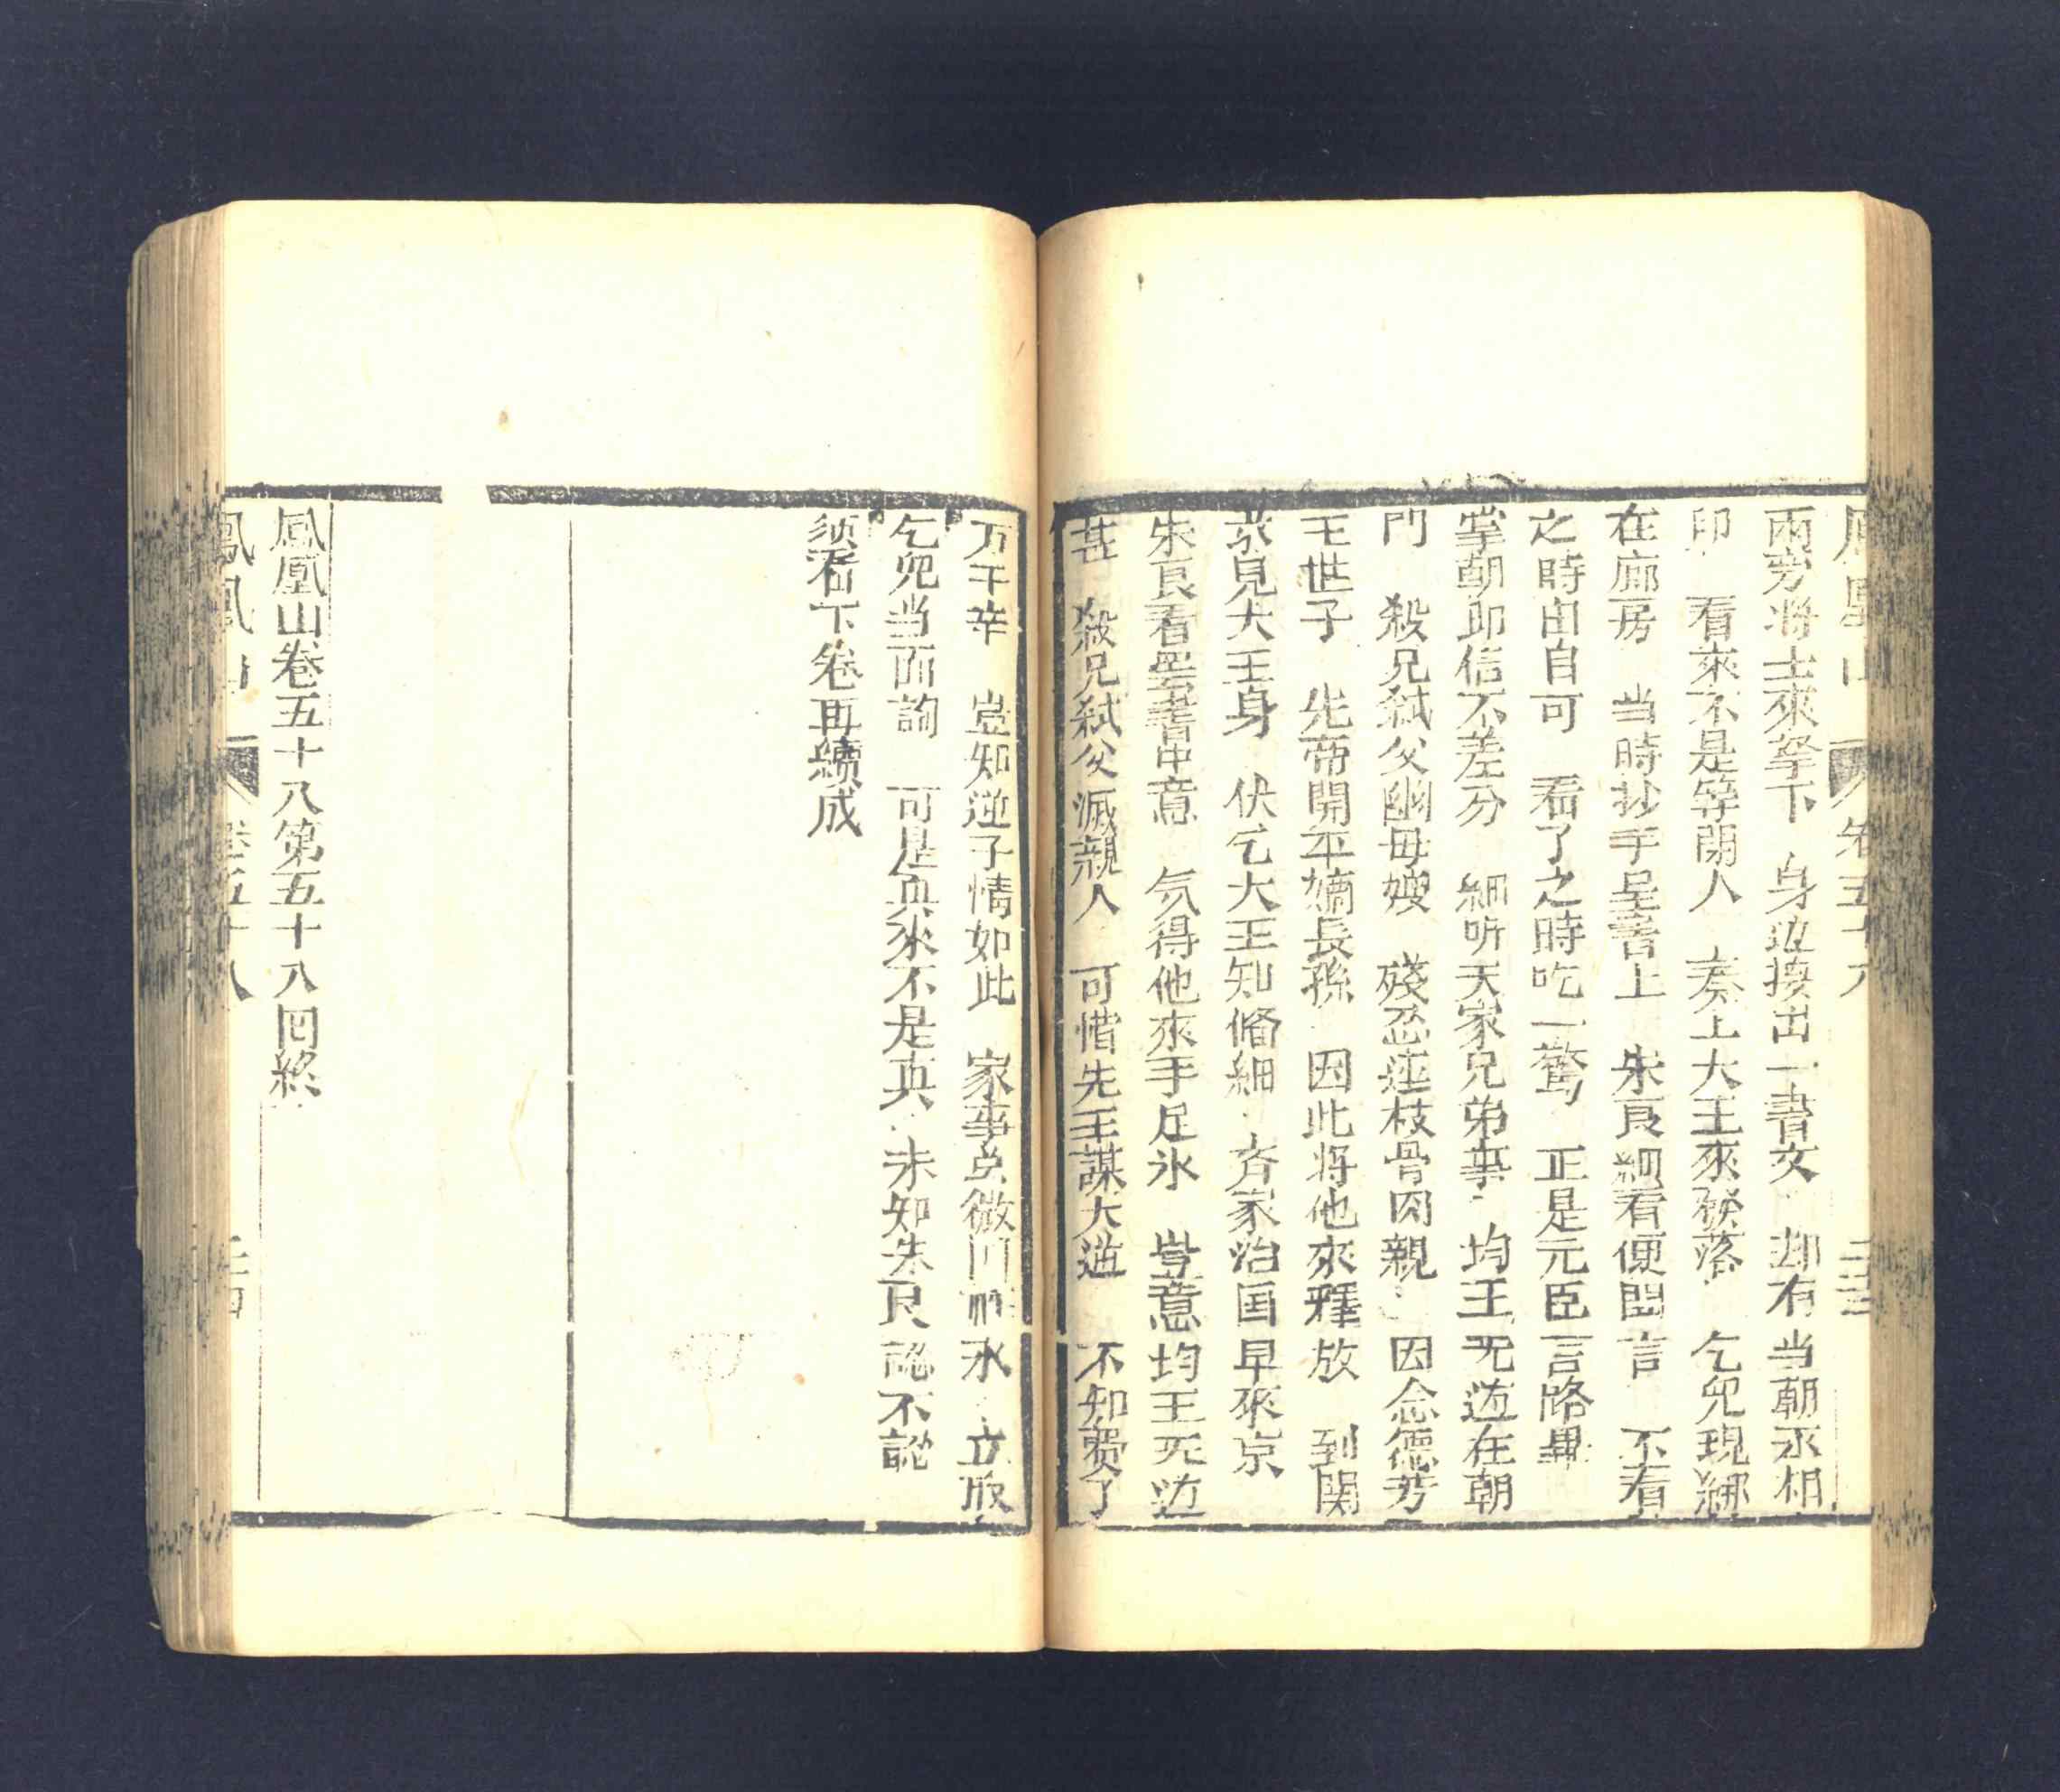 鳳凰山 卷五十八 二十三
兩旁将士來拏下 身边搜出一書文 却有当朝丞相
印 看來不是等閒人 奏上大王來發落 乞兒現綁
在廊房 当時抄手呈書上 朱良細看便開言 不看
之時由自可 看了之時吃一驚 正是元臣言路畢
掌朝印信不差分 細听天家兄弟事 均王无道在朝
門 殺兄弑父幽母嫂 殘忍連枝骨肉親 因念德芳
王世子 先帝開平嫡長孫 因此将他來釋放 到関
求見大王身 伏乞大王知俻細 齐家治国早來京
朱良看罢書中意 氣得他來手足氷 豈意均王无道
甚 殺兄弑父滅親人 可惜先王謀大道 不知費了
万千辛 豈知逆子情如此 家事 微 氷 立取
乞兒当面詢 可是真來不是真 未知朱良認不認
須看下卷再續成
鳳凰山卷五十八第五十八囬終
鳳凰山 卷五十八 二十四